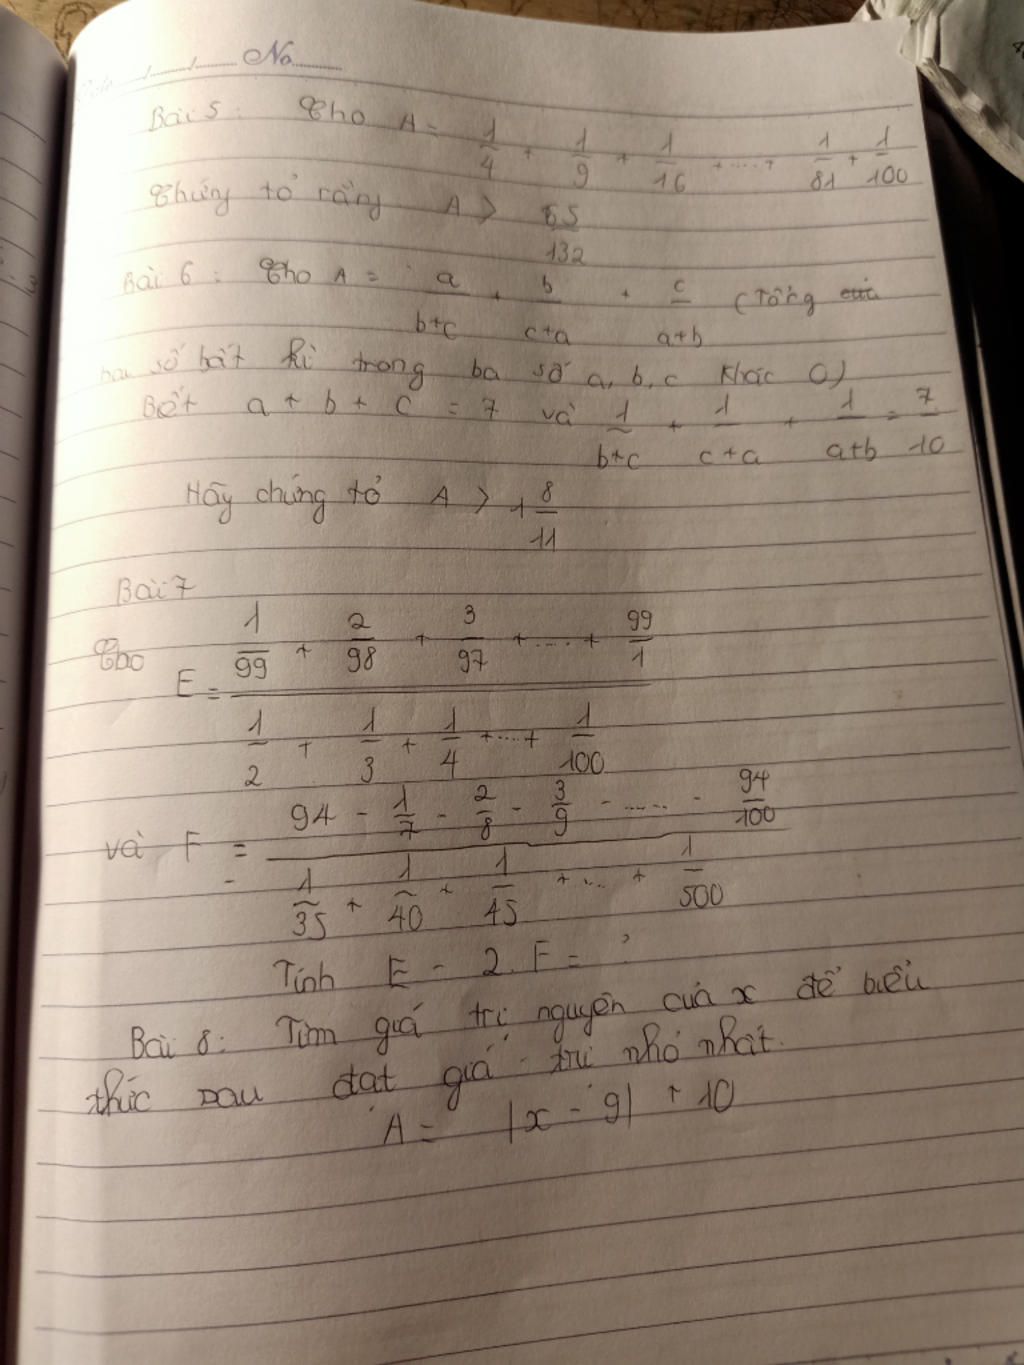 No
Bài 5: Cho A = 1/4 + 1/9 + 1/16 + .... + 1/81 + 1/100
Chứng tỏ rằng A > 65/132
Bài 6: Cho A = a/b+c + b/c+a + c/a+b (Tổng của
hai số bất kì trong ba số a, b, c khác 0)
Biết a + b + c = 7 và 1/b+c + 1/c+a + 1/a+b = 7/10
Hãy chứng tỏ A > 1 8/11
Bài 7
Cho E = (1/99 + 2/98 + 3/97 + .... + 99/1) / (1/2 + 1/3 + 1/4 + .... + 1/100)
và F = (94 - 1/7 - 2/8 - 3/9 - ..... - 94/100) / (1/35 + 1/40 + 1/45 + ... + 1/500)
Tính E - 2.F = ?
Bài 8: Tìm giá trị nguyên của x để biểu
thức sau đạt giá trị nhỏ nhất.
A = |x - 9| + 10